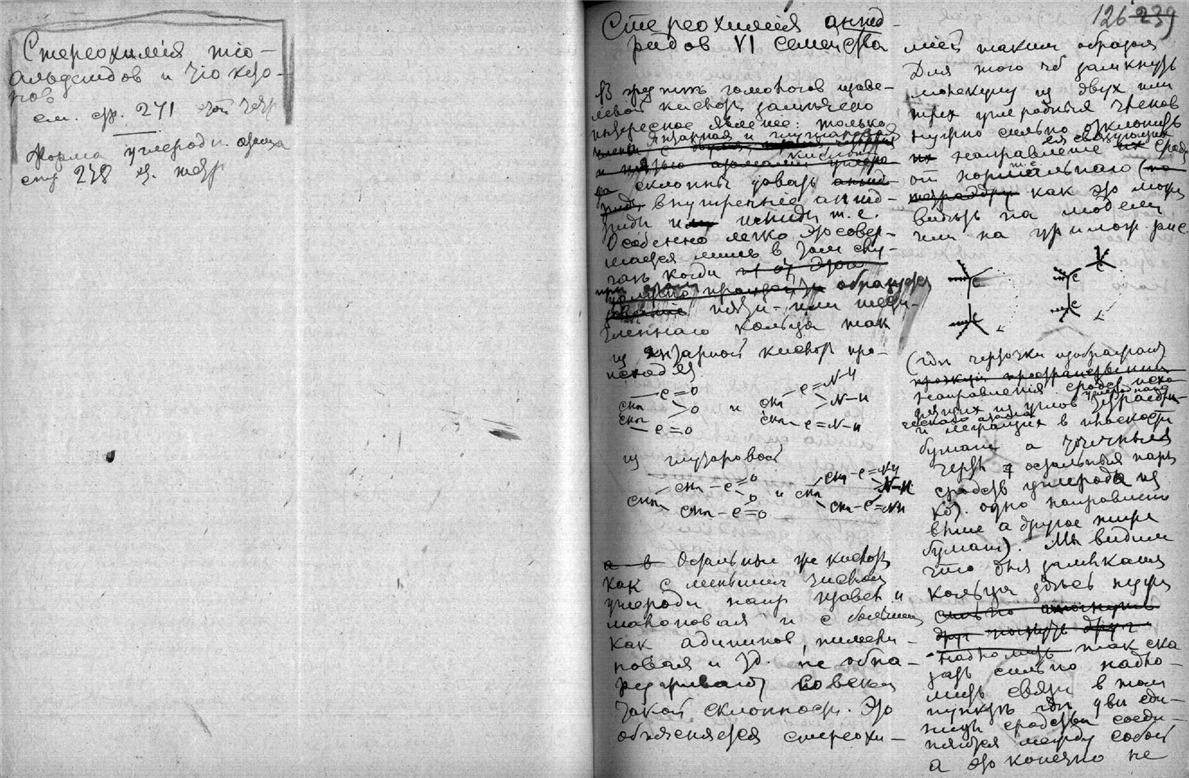 Стереохимия тио-
альдеидов и тиокето-
нов
см. стр. 271 этой тетр
Форма углеродн. атома
стр 238 э. тетр
126 239
Стереохимия ангид-
ридов VI семейства
В среде гомологов щаве-
левой кислоты замечено
интересное явление: только
янтарная и глутаровая
кислоты
склонны давать ангид-
риды внутренние ангид-
риды и имиды т. е.
Особенно легко это совер-
шается лишь в том слу-
чае когда
образуется
пяти- или шести-
членного кольца так
из янтарной кислоты про-
исходят
CH₂ — C=O
O
CH₂ — C=O
и
CH₂ — C=NH
N—H
CH₂ — C=N-H
из глутаровой
CH₂ — C=O
CH₂ O
CH₂ — C=O
и
CH₂ — C=NH
CH₂ N—H
CH₂ — C=NH
а в остальные же кислоты
как с меньшим числом
углерода напр щавел. и
малоновая и с большим
как адипинов, пимели-
новая и др. не обна-
руживают совсем
такой склонности. Это
объясняется стереохи-
мией таким образом
Для того чтоб замкнуть
молекулу из двух или
трех углеродных членов
нужно сильно отклонить
их направление их сродств
от нормального (по
тетраэдру как это можно
видеть на модели
или на прилож. рис
(где черточки изображают
направления сродств исхо-
дящих из углов тетраэдри-
ческого атома углерода
и лежащих в плоскости
бумаги а точечными
черт. остальная пара
сродств углерода из
ко). одно направлено
выше а другое ниже
бумаги). Мы видим
что для замыкания
кольца здесь нужно
сильно
друг друга
надломить так ска-
зать сильно надло-
мить связи в том
пункте где две еди-
ницы сродства соеди-
няются между собой
а это конечно не